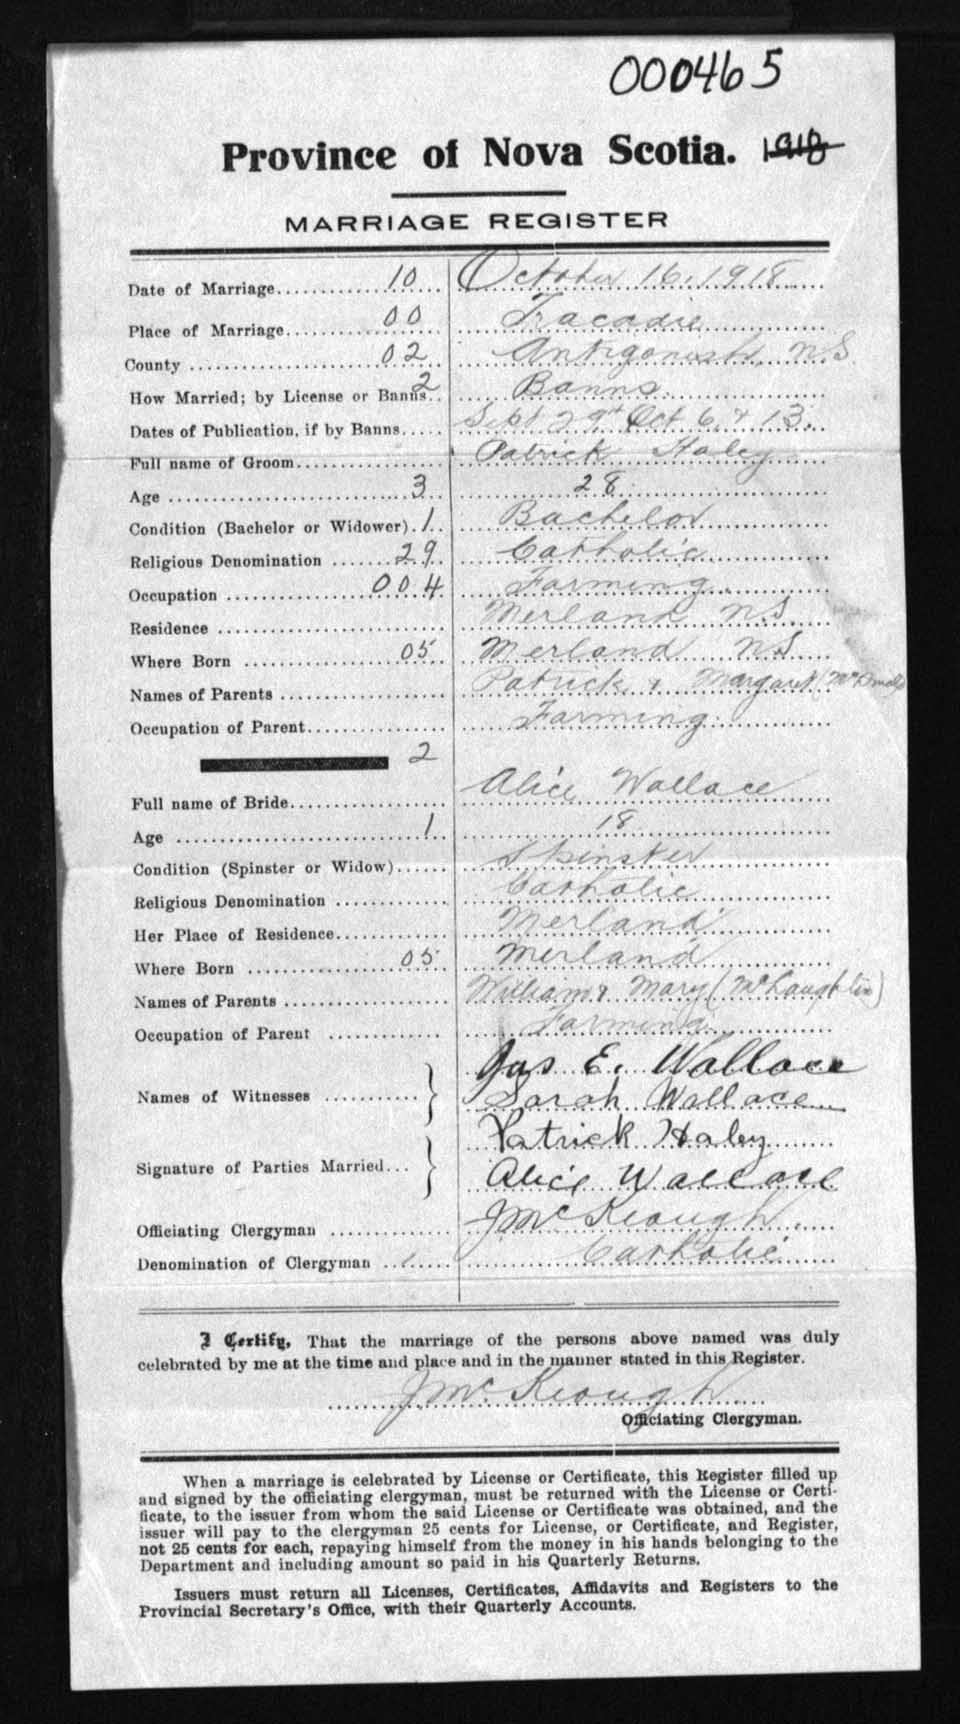 000465
Province of Nova Scotia. 1918
MARRIAGE REGISTER
Date of Marriage 10 October 16, 1918
Place of Marriage 00 Tracadie
County 02 Antigonish, N.S
How Married; by License or Banns 2 Banns
Dates of Publication, if by Banns Sept 29th Oct 6 & 13.
Full name of Groom Patrick Haley
Age 3 28
Condition (Bachelor or Widower) 1 Bachelor
Religious Denomination 29 Catholic
Occupation 004 Farming
Residence Merland N.S.
Where Born 05 Merland N.S
Names of Parents Patrick & Margaret
Occupation of Parent Farming
2
Full name of Bride Alice Wallace
Age 1 18
Condition (Spinster or Widow) Spinster
Religious Denomination Catholic
Her Place of Residence Merland
Where Born 05 Merland
Names of Parents William & Mary (McLaughlin)
Occupation of Parent Farming
Names of Witnesses Jas E. Wallace
Sarah Wallace
Signature of Parties Married Patrick Haley
Alice Wallace
Officiating Clergyman J Mc Keough
Denomination of Clergyman Catholic
I Certify, That the marriage of the persons above named was duly
celebrated by me at the time and place and in the manner stated in this Register.
J Mc Keough
Officiating Clergyman.
When a marriage is celebrated by License or Certificate, this Register filled up
and signed by the officiating clergyman, must be returned with the License or Certi-
ficate, to the issuer from whom the said License or Certificate was obtained, and the
issuer will pay to the clergyman 25 cents for License, or Certificate, and Register,
not 25 cents for each, repaying himself from the money in his hands belonging to the
Department and including amount so paid in his Quarterly Returns.
Issuers must return all Licenses, Certificates, Affidavits and Registers to the
Provincial Secretary's Office, with their Quarterly Accounts.